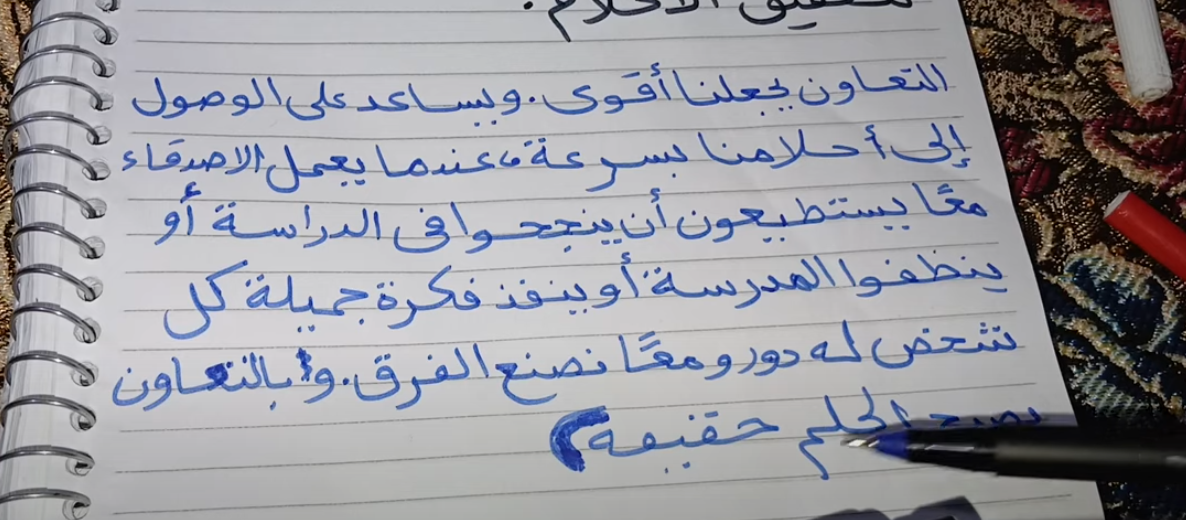 تحقيق الأحلام.
التعاون يجعلنا أقوى. ويساعد على الوصول
إلى أحلامنا بسرعة، عندما يعمل الاصدقاء
معًا يستطيعون أن ينجحوا في الدراسة أو
ينظفوا المدرسة أو ينفذ فكرة جميلة كل
شخص له دور ومعًا نصنع الفرق. و بالتعاون
يصبح الحلم حقيقه)